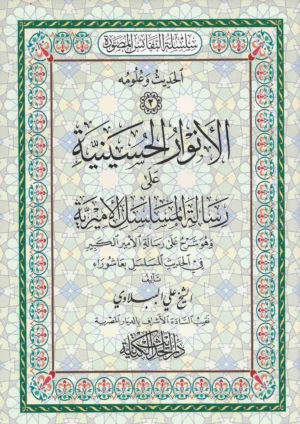 سلسلة النفائس المصورة
الحديث وعلومه
٣
الأنوار الحسينية
على
رسالة المسلسل الأميرية
وهو شرح على رسالة الأمير الكبير
في الحديث المسلسل بعاشوراء
تأليف
الشيخ علي الببلاوي
نقيب السادة الأشراف بالديار المصرية